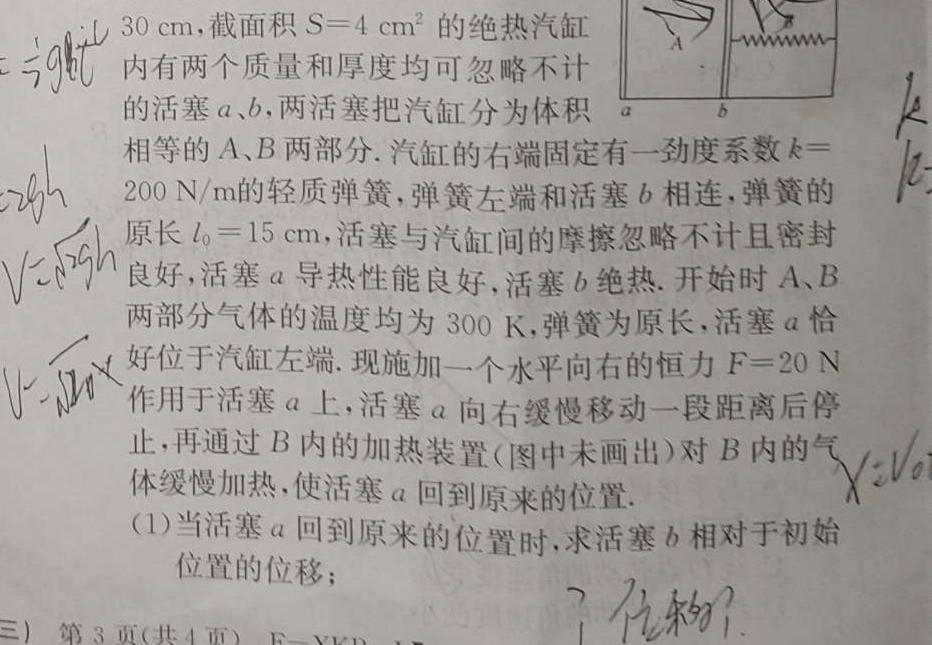 30 cm,截面积 S=4 cm² 的绝热汽缸
内有两个质量和厚度均可忽略不计
A
的活塞 a、b,两活塞把汽缸分为体积
a b
相等的 A、B 两部分. 汽缸的右端固定有一劲度系数 k=
200 N/m的轻质弹簧,弹簧左端和活塞 b 相连,弹簧的
原长 l₀=15 cm,活塞与汽缸间的摩擦忽略不计且密封
V=√2gh
良好,活塞 a 导热性能良好,活塞 b 绝热. 开始时 A、B
两部分气体的温度均为 300 K,弹簧为原长,活塞 a 恰
好位于汽缸左端. 现施加一个水平向右的恒力 F=20 N
作用于活塞 a 上,活塞 a 向右缓慢移动一段距离后停
止,再通过 B 内的加热装置(图中未画出)对 B 内的气
体缓慢加热,使活塞 a 回到原来的位置.
(1)当活塞 a 回到原来的位置时,求活塞 b 相对于初始
位置的位移;
?位移?
三) 第 3 页(共 4 页)